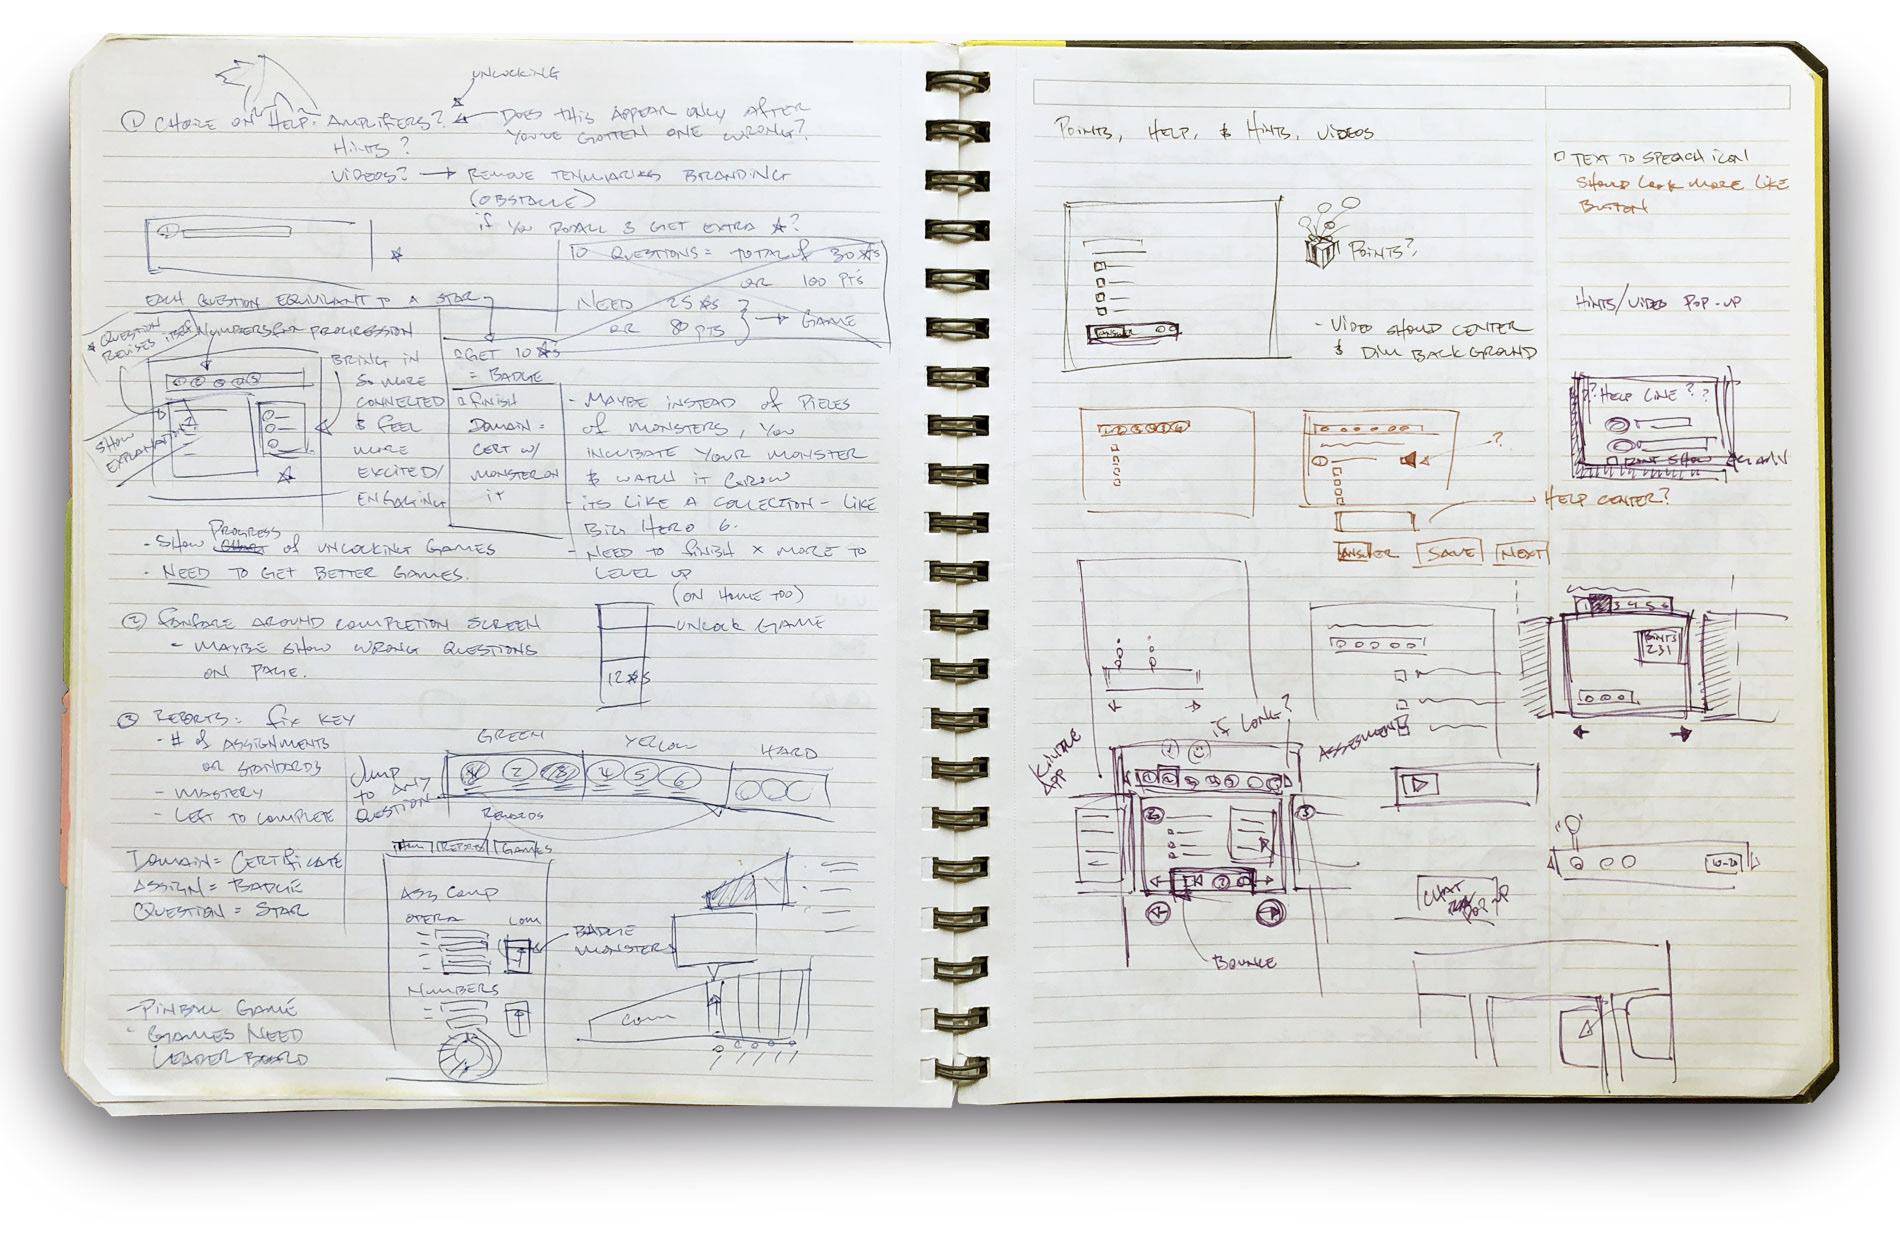 UNLOCKING
① CHOICE ON HELP: AMPLIFIERS? ← DOES THIS APPEAR ONLY AFTER
YOU'VE GOTTEN ONE WRONG?
HINTS?
VIDEOS? → REMOVE BRANDING
(OBSTACLE)
IF YOU & GET EXTRA ☆?
10 QUESTIONS = TOTAL OF 30 ☆S
OR 100 PTS
NEED 25 ☆S
OR 80 PTS → GAME
EACH QUESTION EQUIVALENT TO A STAR
☆ QUESTION
REVISES ITSELF
NUMBERS FOR PROGRESSION
SHOW
EXPLANATION
BRING IN
SO MORE
CONNECTED
& FEEL
MORE
EXCITED/
ENGAGING
GET 10 ☆S
= BADGE
FINISH
DOMAIN =
CERT W/
MONSTER ON
IT
- MAYBE INSTEAD OF PIECES
OF MONSTERS, YOU
INCUBATE YOUR MONSTER
& WATCH IT GROW
- ITS LIKE A COLLECTION - LIKE
BIG HERO 6.
- NEED TO FINISH X MORE TO
LEVEL UP
(ON HOME TOO)
PROGRESS
- SHOW OF UNLOCKING GAMES
- NEED TO GET BETTER GAMES.
② FANFARE AROUND COMPLETION SCREEN
- MAYBE SHOW WRONG QUESTIONS
ON PAGE.
UNLOCK GAME
12 ☆S
③ REPORTS: FIX KEY
- # OF ASSIGNMENTS
OR STANDARDS
- MASTERY
- LEFT TO COMPLETE
JUMP
TO ANY
QUESTION
GREEN YELLOW HARD
2 3 4 5 6
REWARDS
DOMAIN = CERTIFICATE
ASSIGN = BADGE
QUESTION = STAR
REPORTS GAMES
ASG COMP
OPERA COM
BADGE
MONSTER
NUMBERS
COM
- PINBALL GAME
- GAMES NEED
LEADER BOARD
POINTS, HELP, & HINTS, VIDEOS
□ TEXT TO SPEECH ICON
SHOULD LOOK MORE LIKE
BUTTON
POINTS?
ANSWER
- VIDEO SHOULD CENTER
& DIM BACKGROUND
HINTS/VIDEO POP-UP
? HELP LINE? ?
DONT SHOW AGAIN
?
HELP CENTER?
ANSWER SAVE NEXT
1 2 3 4 5 6
POINTS
231
IF LONG?
ASSESSMENT
KINDLE
APP
1 2
2
3
BOUNCE
10-20
CHAT
POP-UP